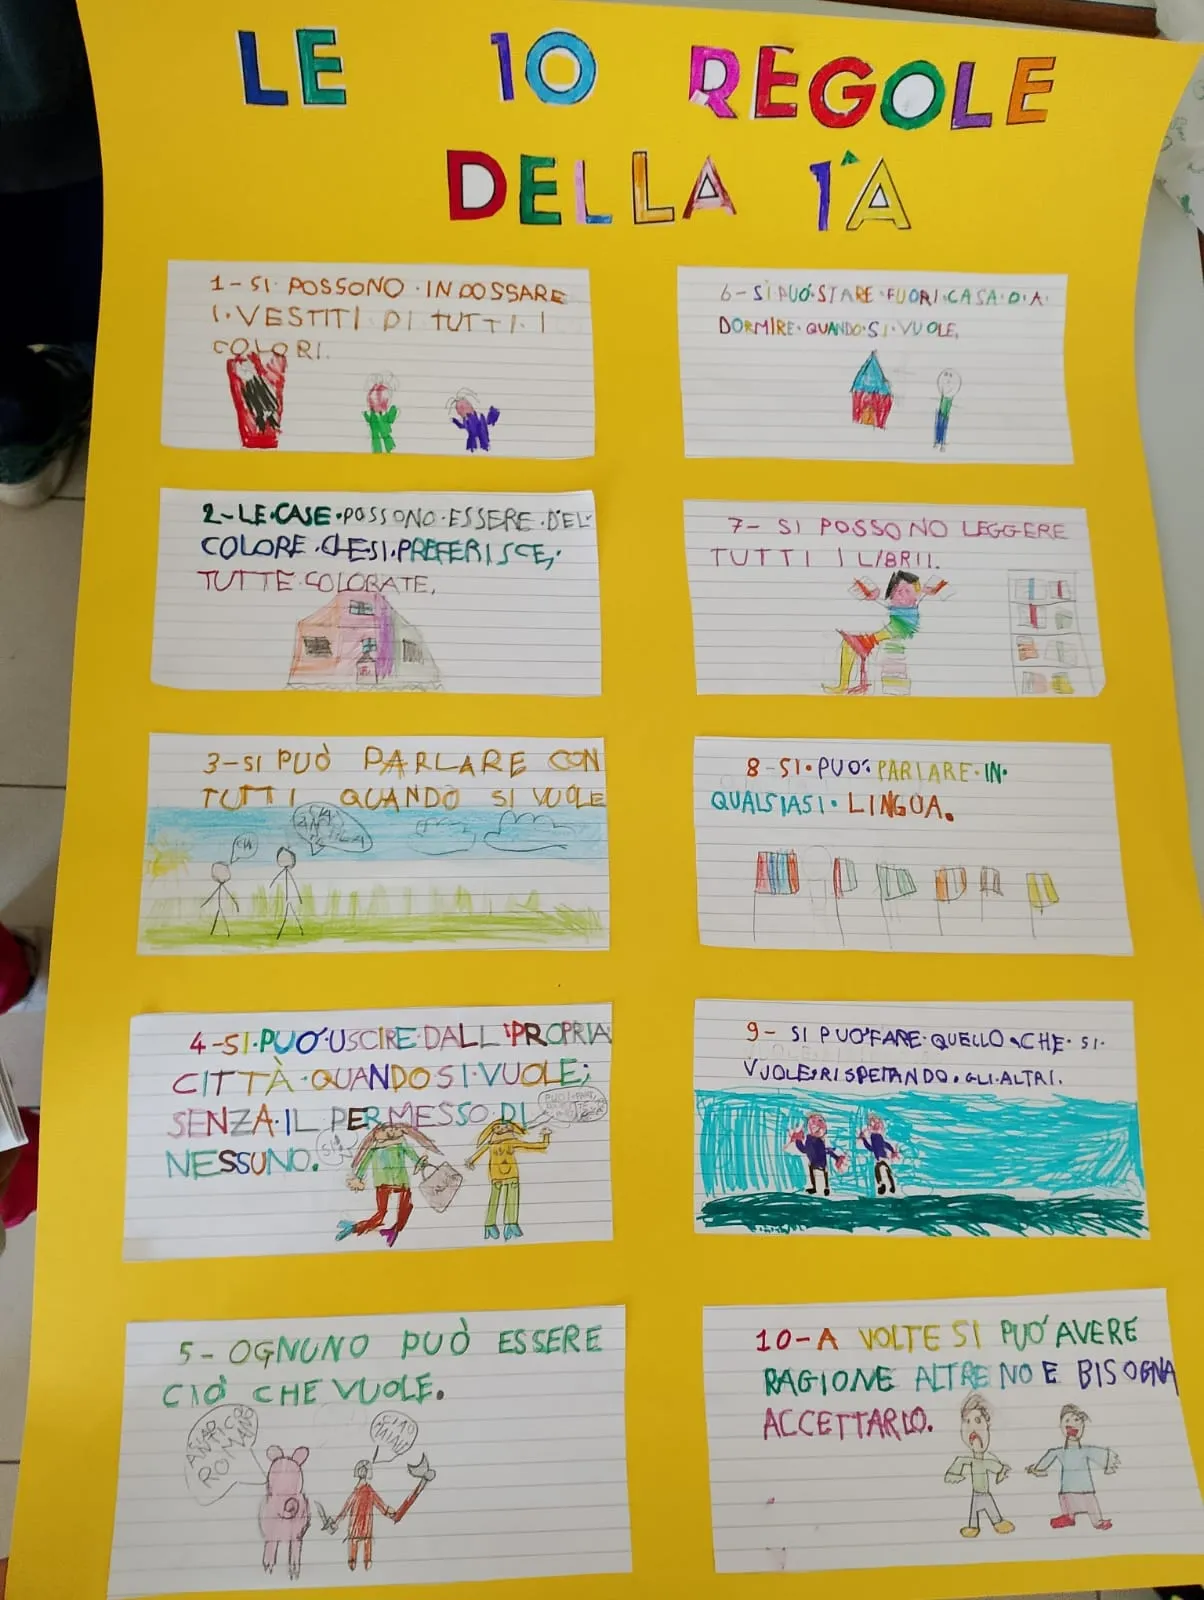 LE 10 REGOLE
DELLA 1^A
1-SI POSSONO INDOSSARE
I VESTITI DI TUTTI I
COLORI.
2-LE CASE POSSONO ESSERE DEL
COLORE CHE SI PREFERISCE,
TUTTE COLORATE,
3-SI PUÒ PARLARE CON
TUTTI QUANDO SI VUOLE
4-SI PUO' USCIRE DALL'PROPRIA
CITTÀ QUANDO SI VUOLE;
SENZA IL PERMESSO DI
NESSUNO.
5-OGNUNO PUÒ ESSERE
CIÒ CHE VUOLE.
CIAO
ROMANO
6-SI PUÓ STARE FUORI CASA DA
DORMIRE QUANDO SI VUOLE,
7- SI POSSONO LEGGERE
TUTTI I LIBRII.
8-SI PUO' PARLARE IN
QUALSIASI LINGUA.
9- SI PUO' FARE QUELLO CHE SI
VUOLE RISPETTANDO GLI ALTRI.
10-A VOLTE SI PUO' AVERE
RAGIONE ALTRE NO E BISOGNA
ACCETTARLO.